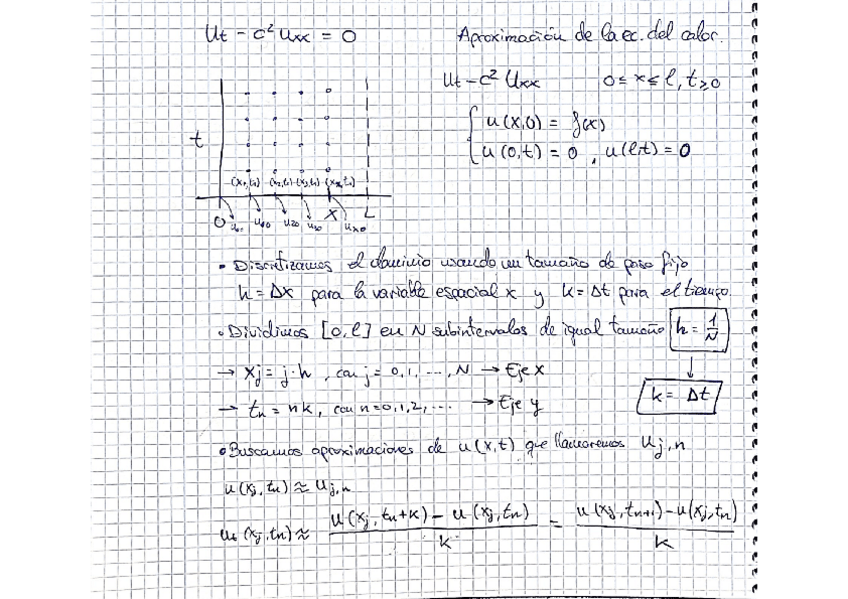 Ut - c² Uxx = 0
Aproximación de la ec. del calor.
Ut - c² Uxx    0 ≤ x ≤ l, t ≥ 0
u(x,0) = f(x)
u(0,t) = 0, u(l,t) = 0
t
(x₁,t₁) (x₂,t₁) (x₃,t₁)
0 X L
• Discretizamos el dominio usando un tamaño de paso fijo
h = Δx para la variable espacial x y k = Δt para el tiempo.
• Dividimos [0,l] en N subintervalos de igual tamaño h = 1/N
→ xj = j·h, con j = 0,1, ..., N → Eje x
k = Δt
→ tn = nk, con n = 0,1,2, ... → Eje y
• Buscamos aproximaciones de u(x,t) que llamaremos uj,n
u(xj,tn) ≈ uj,n
ut(xj,tn) ≈ (u(xj,tn+k) - u(xj,tn))/k = (u(xj,tn+1) - u(xj,tn))/k